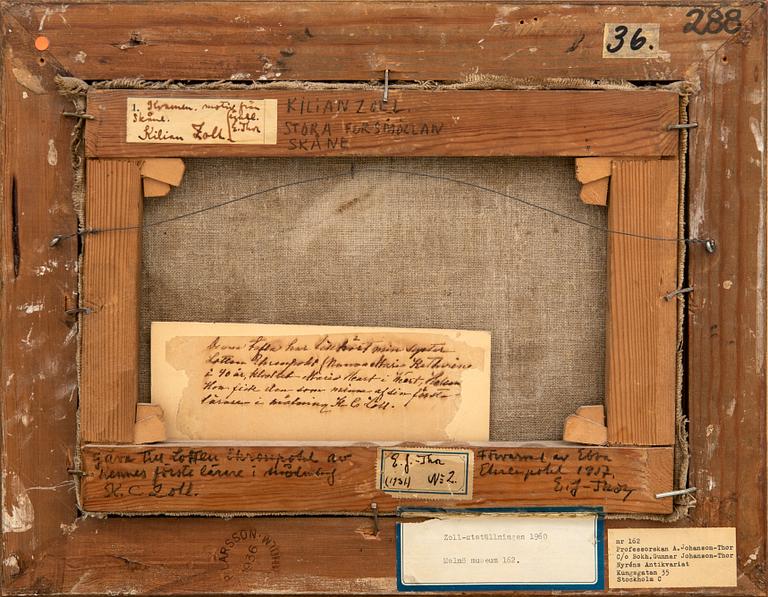 288
36.
1. Skramen. motiv från
Skåne.
Kilian Zoll.
E. Thor
KILIAN ZOLL.
STORA FORSMÖLLAN
SKÅNE
Denna tafla har min syster
Lotten Ehrenpohl (Nunna Maria Kathrina
i 40 år, klostret Maria Hart i
Hon fick den som minne af sin förste
lärare i målning K C Zoll.
Gåva till Lotten Ehrenpohl av
hennes förste lärare i målning
K. C. Zoll.
E. J-Thor
(1931) No 2.
Förvärvad av Ebba
Ehrenpohl 1937.
E. J-Thor
LARSSON-WIDHE
1936
Zoll-utställningen 1960
Malmö museum 162.
nr 162
Professorskan A. Johanson-Thor
C/o Bokh. Gunnar Johanson-Thor
Nyréns Antikvariat
Kungsgatan 35
Stockholm C